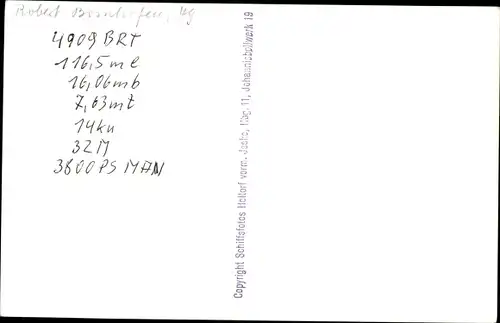 Robert Bornhofen, Hg
4909 BRT
116,5 ml
16,06 mb
7,63 mt
14 kn
32 M
3800 PS MAN
Copyright Schiffsfotos Hellorf vorm. Jools, Hbg. 11, Johannisbollwerk 19